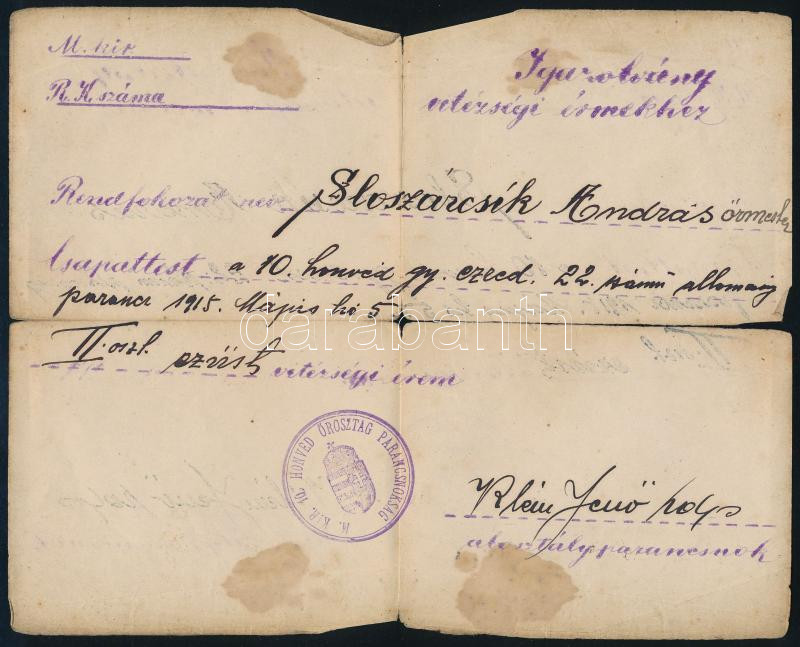 M. kir.
R. K. száma
Igazolvány
vitézségi érmekhez
Rendfokozat név Sloszárcsík András őrmester
Csapattest a 10. honvéd gy. ezred. 22. számú állomány
parancs 1915. Május hó 5
II. oszt. ezüst vitézségi érem
darabanth
M. KIR. 10. HONVÉD ŐROSZTAG PARANCSNOKSÁG
Klein Jenő hdgy
alosztályparancsnok